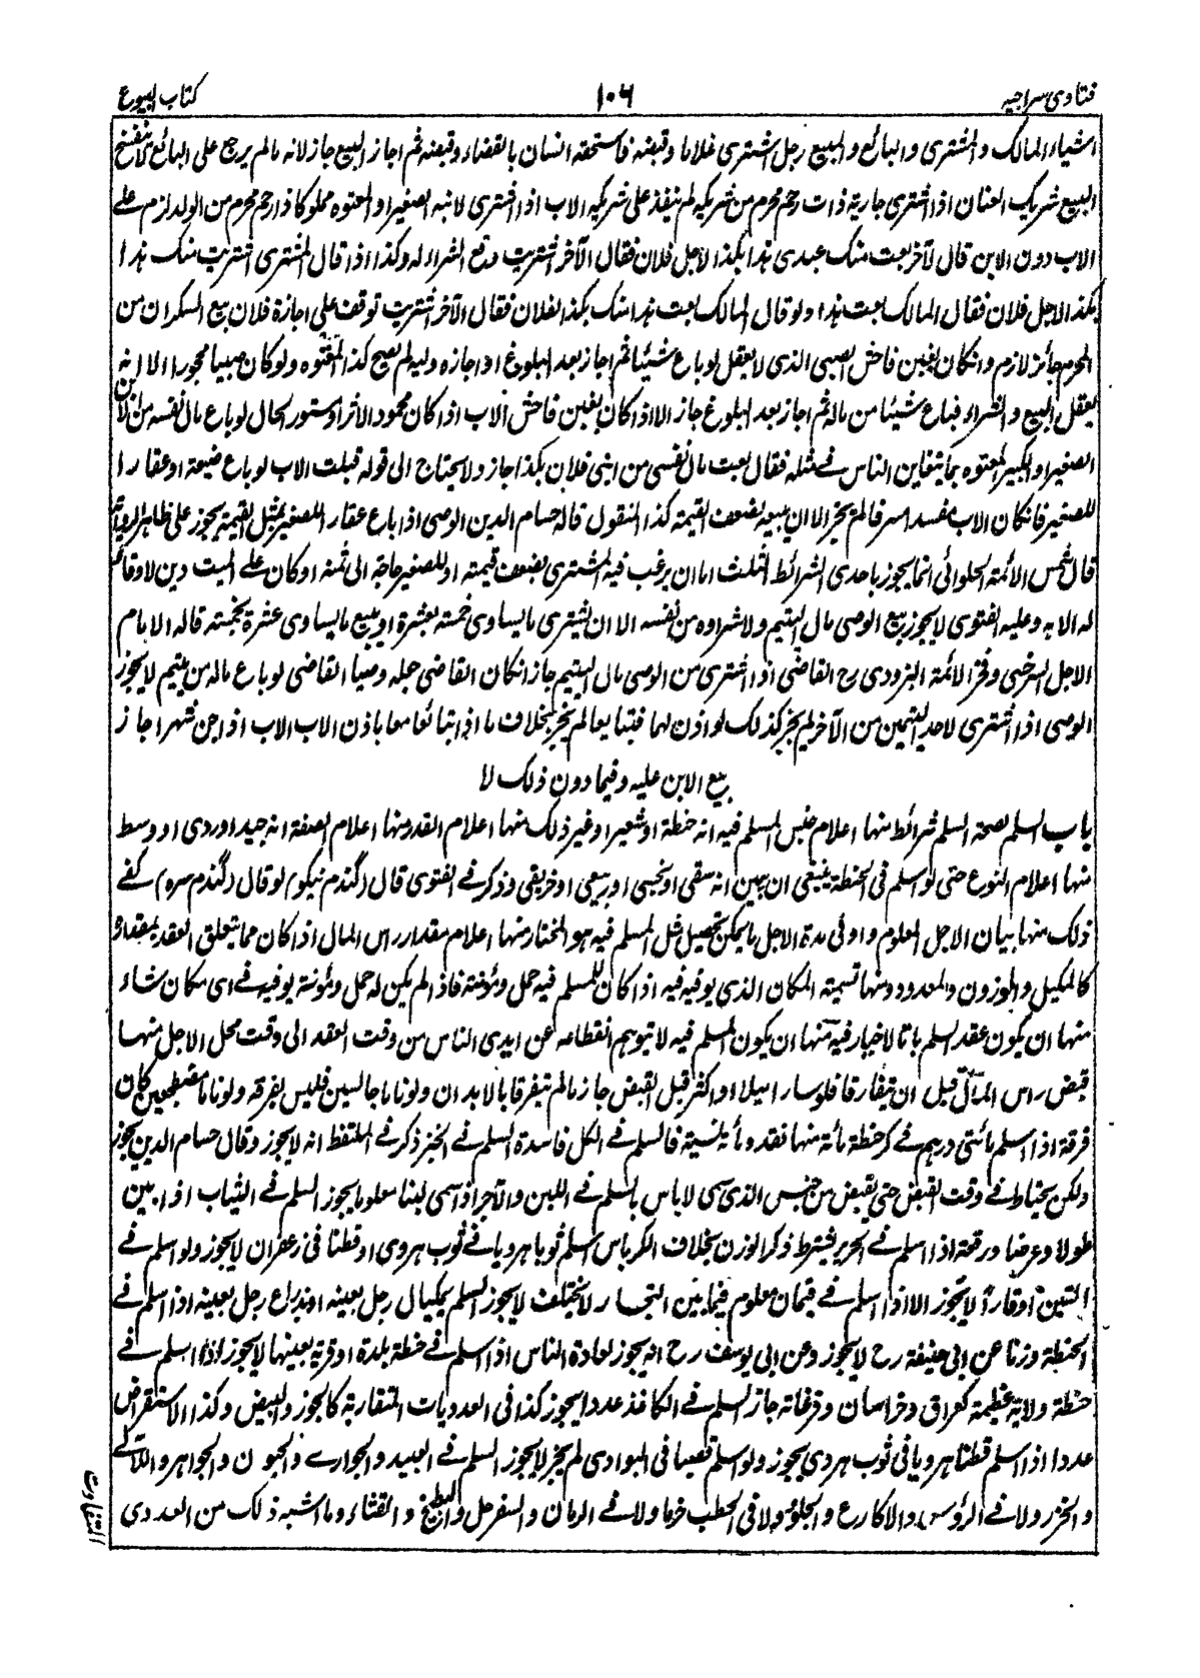 فتاوی سراجیہ
۱۰۶
کتاب البیوع
اشیاء المالک والمشتری والبائع والمبیع رجل اشتری غلاما وقبضه فاستحقه انسان بالقضاء وقبضه ثم اجاز البیع جاز لانه مالم یرجع علی البائع لا ینفسخ
البیع شریک العنان اذا اشتری جاریة ذات رحم محرم من شریکه لم ینفذ علی شریکه الاب اذا اشتری لابنه الصغیر او المعتوه مملوکا ذا رحم محرم من الولد لزم علے
الاب دون الابن قال لآخر بعت منک عبدی هذا بکذا لاجل فلان فقال الآخر اشتریت وقع الشراء له وکذا اذا قال المشتری اشتریت منک هذا
بکذا لاجل فلان فقال المالک بعت هذا ولو قال المالک بعت هذا منک بکذا لفلان فقال الآخر اشتریت توقف علی اجازة فلان بیع السکران من
المحرم جائز لازم وان کان بغبن فاحش الصبی الذی لا یعقل لو باع شیئا ثم اجاز بعد البلوغ او اجازه ولیه لم یصح کذا المعتوه ولو کان صبیا محجورا الا انه
یعقل البیع والشراء فباع شیئا من ماله ثم اجاز بعد البلوغ جاز الا اذا کان بغبن فاحش الاب اذا کان محمود الاثر او مستور الحال لو باع مال نفسه من الابن
الصغیر او الکبیر المعتوه بما یتغابن الناس فے مثله فقال بعت مال نفسی من ابنی فلان بکذا جاز ولا یحتاج الی قوله قبلت الاب لو باع ضیعة او عقارا
للصغیر فان کان الاب مفسد مسرفا لم یجز الا ان یبیعه بضعف القیمة کذا المنقول قاله حسام الدین الوصی اذا باع عقار الصغیر بمثل القیمة یجوز علی ظاهر الروایة
قال شمس الائمة الحلوائی انما یجوز باحدی الشرائط الثلث اما ان یرغب فیه المشتری بضعف قیمته او للصغیر حاجة الی ثمنه او کان علے المیت دین لا وفاء
له الا به وعلیه الفتوی لا یجوز بیع الوصی مال الیتیم ولا شراؤه من نفسه الا ان یشتری ما یساوی خمسة بعشرة او یبیع ما یساوی عشرة بخمسة قاله الامام
الاجل السرخسی وفخر الائمة البزدوی رح القاضی اذا اشتری من الوصی مال الیتیم جاز ان کان القاضی جعله وصیا القاضی لو باع ماله من یتیم لا یجوز
الوصی اذا اشتری لاحد الیتیمین من الآخر لم یجز کذلک لو اذن لهما فتبایعا لم یجز بخلاف ما اذا تبایعا باذن الاب الاب اذا جن شهرا جاز
بیع الابن علیه وفیما دون ذلک لا
باب السلم لصحة السلم شرائط منها اعلام جنس المسلم فیه انه حنطة او شعیر او غیر ذلک منها اعلام القدر ومنها اعلام الصفة انه جید او ردی او وسط
منها اعلام النوع حتی لو اسلم فی الحنطة ینبغی ان یبین انه سقی او بخسی او ربیعی او خریفی وذکر فے الفتوی قال (گندم نیکو) لو قال (گندم سره) کفے
ذلک منها بیان الاجل المعلوم واوفی مدة الاجل ما یمکن تحصیل مثل المسلم فیه هو المختار منها اعلام مقدار راس المال اذا کان مما یتعلق العقد بمقداره
کالمکیل والموزون والمعدود ومنها تسمیة المکان الذی یوفیه فیه اذا کان للمسلم فیه حمل ومؤنة فاذا لم یکن له حمل ومؤنة یوفیه فے ای مکان شاء
منها ان یکون عقد السلم باتا لا خیار فیه منها ان یکون المسلم فیه لا یتوهم انقطاعه عن ایدی الناس من وقت العقد الی وقت محل الاجل منها
قبض راس المال قبل ان یتفارقا فلو سارا میلا او اکثر قبل القبض جاز مالم یتفرقا بالابدان ولو ناما جالسین فلیس بفرقة ولو ناما مضطجعین کان
فرقة اذا اسلم مائتی درهم فے کر حنطة مائة منها نقد ومائة نسیئة فالسلم فے الکل فاسدة السلم فے الخبز ذکر فے الملتقط انه لا یجوز وقال حسام الدین یجوز
ولکن یحتاط فے وقت القبض حتی یقبض من جنس الذی سمی لا باس بالسلم فے اللبن والآجر اذا سمی لبنا معلوما یجوز السلم فے الثیاب اذا بین
طولا وعرضا ورقعة اذا اسلم فے الحریر یشترط ذکر الوزن بخلاف الکرباس اسلم ثوبا هرویا فے ثوب هروی او قطنا فی زعفران لا یجوز ولو اسلم فے
التبن اوقارا لا یجوز الا اذا اسلم فے قیمان معلوم فیما بین التجار لا یختلف لا یجوز السلم بمکیال رجل بعینه او بذراع رجل بعینه اذا اسلم فے
الحنطة وزنا عن ابی حنیفة رح لا یجوز وعن ابی یوسف رح انه یجوز لعادة الناس اذا اسلم فے حنطة بلدة او قریة بعینها لا یجوز اذا اسلم فے
حنطة ولایة عظیمة کعراق وخراسان وفرغانة جاز السلم فے الکاغذ عددا یجوز کذا فی العددیات المتقاربة کالجوز والبیض وکذا الاستقراض
عددا اذا اسلم قطنا هرویا فی ثوب هروی یجوز ولو اسلم قصبا فی البواری لم یجز لا یجوز السلم فے العبید والجوارے والحبوان والجواهر واللآلے
والخرز ولا فے الرؤس والاکارع والجلود ولا فی الحطب حزما ولا فے الرمان والسفرجل والبطیخ والقثاء وما اشبه ذلک من العددی
المتفاوت